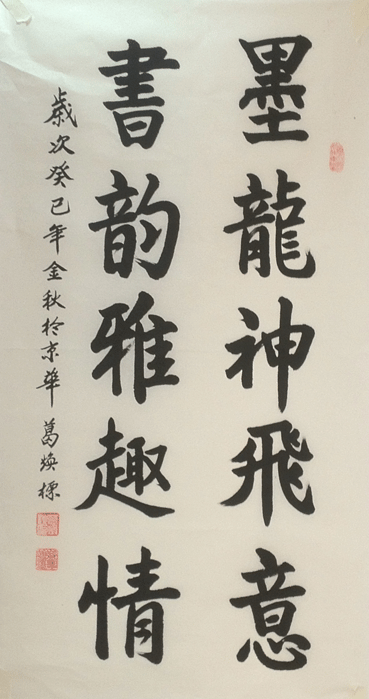 墨龍神飛意
書韵雅趣情
歲次癸巳年金秋於京華葛煥標